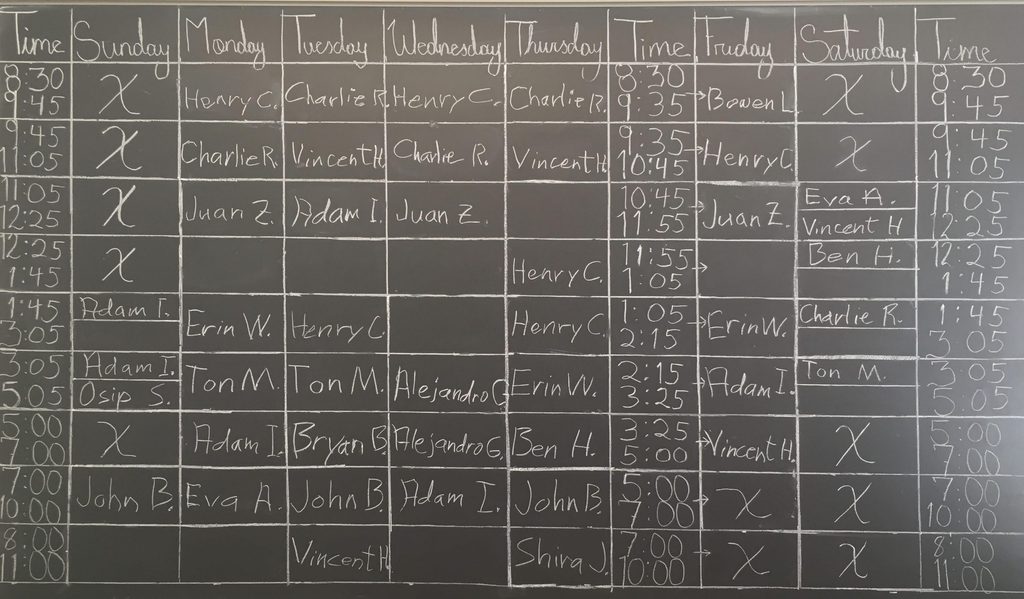 Time Sunday Monday Tuesday Wednesday Thursday Time Friday Saturday Time
8:30 9:45 X Henry C. Charlie R. Henry C. Charlie R. 8:30 9:35 → Bowen L. X 8:30 9:45
9:45 11:05 X Charlie R. Vincent H. Charlie R. Vincent H. 9:35 10:45 → Henry C. X 9:45 11:05
11:05 12:25 X Juan Z. Adam I. Juan Z. 10:45 11:55 → Juan Z. Eva A. Vincent H 11:05 12:25
12:25 1:45 X Henry C. 11:55 1:05 → Ben H. 12:25 1:45
1:45 3:05 Adam I. Erin W. Henry C. Henry C. 1:05 2:15 → Erin W. Charlie R. 1:45 3:05
3:05 5:05 Adam I. Osip S. Ton M. Ton M. Alejandro G. Erin W. 2:15 3:25 → Adam I. Ton M. 3:05 5:05
5:00 7:00 X Adam I. Bryan B. Alejandro G. Ben H. 3:25 5:00 → Vincent H. X 5:00 7:00
7:00 10:00 John B. Eva A. John B. Adam I. John B. 5:00 7:00 → X X 7:00 10:00
8:00 11:00 Vincent H Shira J. 7:00 10:00 → X X 8:00 11:00